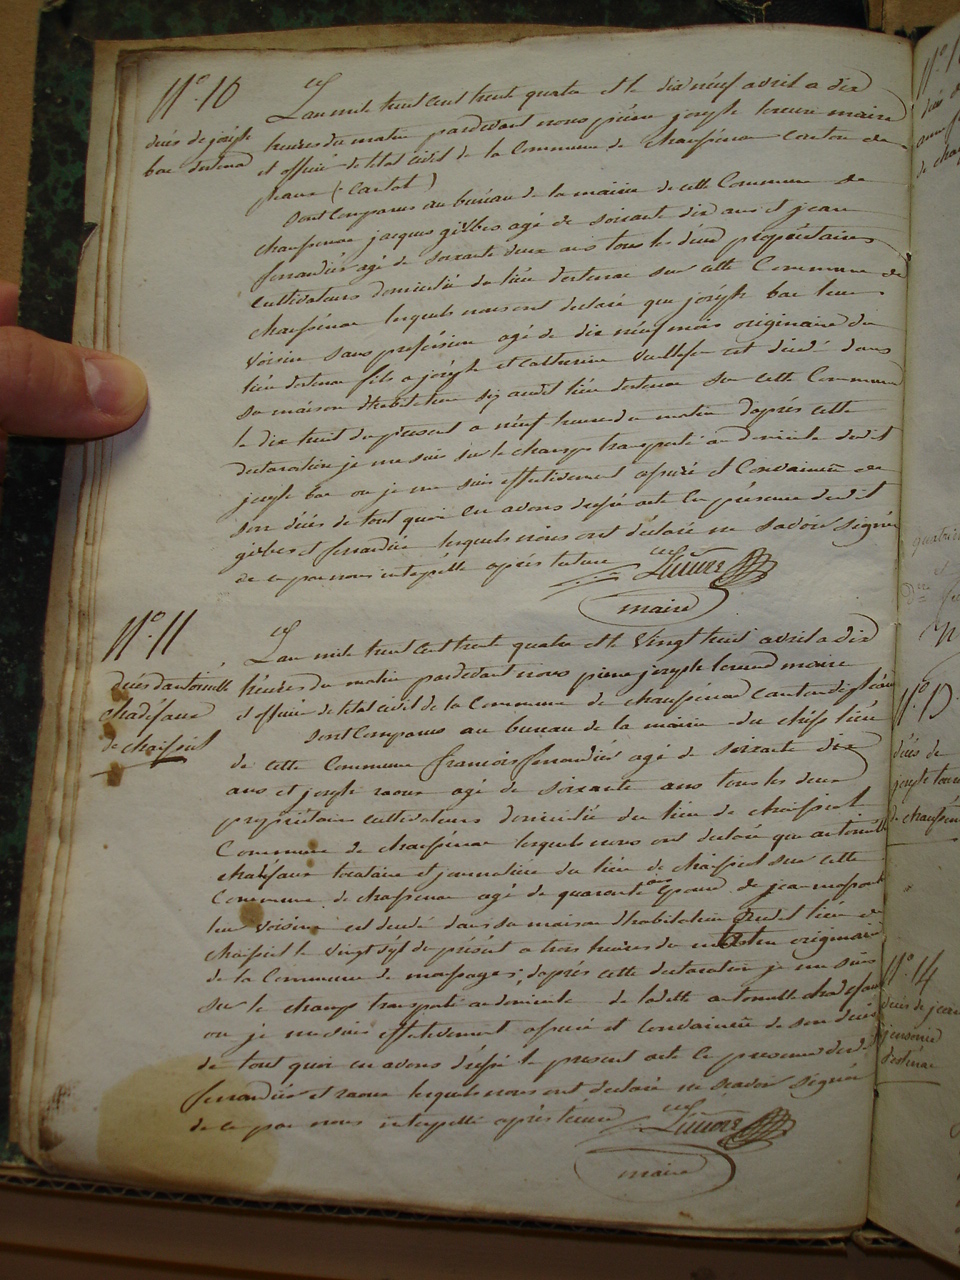 N°. 10
décès de joseph
bac destenac
L'an mil huit cent trente quatre et le dix neuf avril a dix
heures du matin pardevant nous pierre joseph maire
et officier de létat civil de la Commune de chaussenac canton de
pleaux (Cantal)
sont Comparus au bureau de la mairie de cette Commune de
chaussenac jacques gilbes agé de soixante dix ans et jean
ferrandiés agé de soixante deux ans tous les deux propriétaires
cultivateurs domiciliés du lieu destenac sur cette Commune de
chaussenac lesquels nous ont declaré que joseph bac leur
voisin sans profession agé de dix neuf mois originaire du
lieu destenac fils a joseph et Catherine est décédé dans
sa maison d'habitation sis audit lieu destenac sur cette Commune
le dix huit du présent a neuf heures du matin d'après cette
declaration je me suis sur le champ transporté au domicile dudit
joseph bac ou je me suis effectivement assuré et Convaincu de
son décès de tout quoi en avons dressé acte en présence desdits
gilbes et ferrandiés lesquels nous ont declaré ne savoir signer
de ce par nous interpellé après lecture
maire
N°. 11
décès dantoinette
chadefaux
de chaissiol
L'an mil huit cent trente quatre et le vingt huit avril a dix
heures du matin pardevant nous pierre joseph maire
et officier de létat civil de la Commune de chaussenac canton de pleaux
sont Comparus au bureau de la mairie du chef lieu
de cette Commune francois ferrandiés agé de soixante dix
ans et joseph raoux agé de soixante ans tous les deux
propriétaires cultivateurs domiciliés du lieu de chaissiol
Commune de chaussenac lesquels nous ont declaré que antoinette
chadefaux locataire et journaliere du lieu de chaissiol sur cette
Commune de chaussenac agé de quarante ans épouse de jean
leur voisine est decedé dans sa maison d'habitation audit lieu de
chaissiol le vingt sept du présent a trois heures du matin originaire
de la Commune de d'après cette declaration je me suis
sur le champ transporté au domicile de ladite antoinette chadefaux
ou je me suis effectivement assuré et convaincu de son décès
de tout quoi en avons dressé le present acte en presence desdits
ferrandiés et raoux lesquels nous ont declaré ne savoir signer
de ce par nous interpellé après lecture
maire
N°. 13
décès de
joseph
de chaussenac
N°. 14
décès de jean
d'estenac